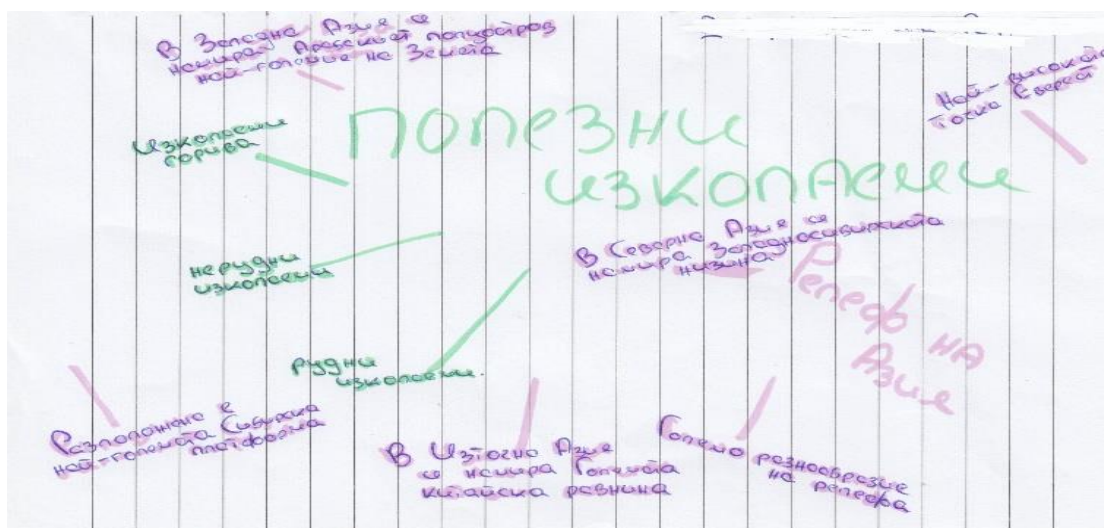 В Западна Азия се
намират Арабският полуостров
най-големие на Земята
Най-високата
точка Еверест
Изкопаеми
горива
ПОЛЕЗНИ
ИЗКОПАЕМИ
В Северна Азия се
намира Западносибирската
низина
Релеф НА
Азия
нерудни
изкопаеми
рудни
изкопаеми.
Разположена е
най-голямата Сибирска
платформа
В Източна Азия
се намира Голямата
китайска равнина
Голямо разнообразие
на релефа